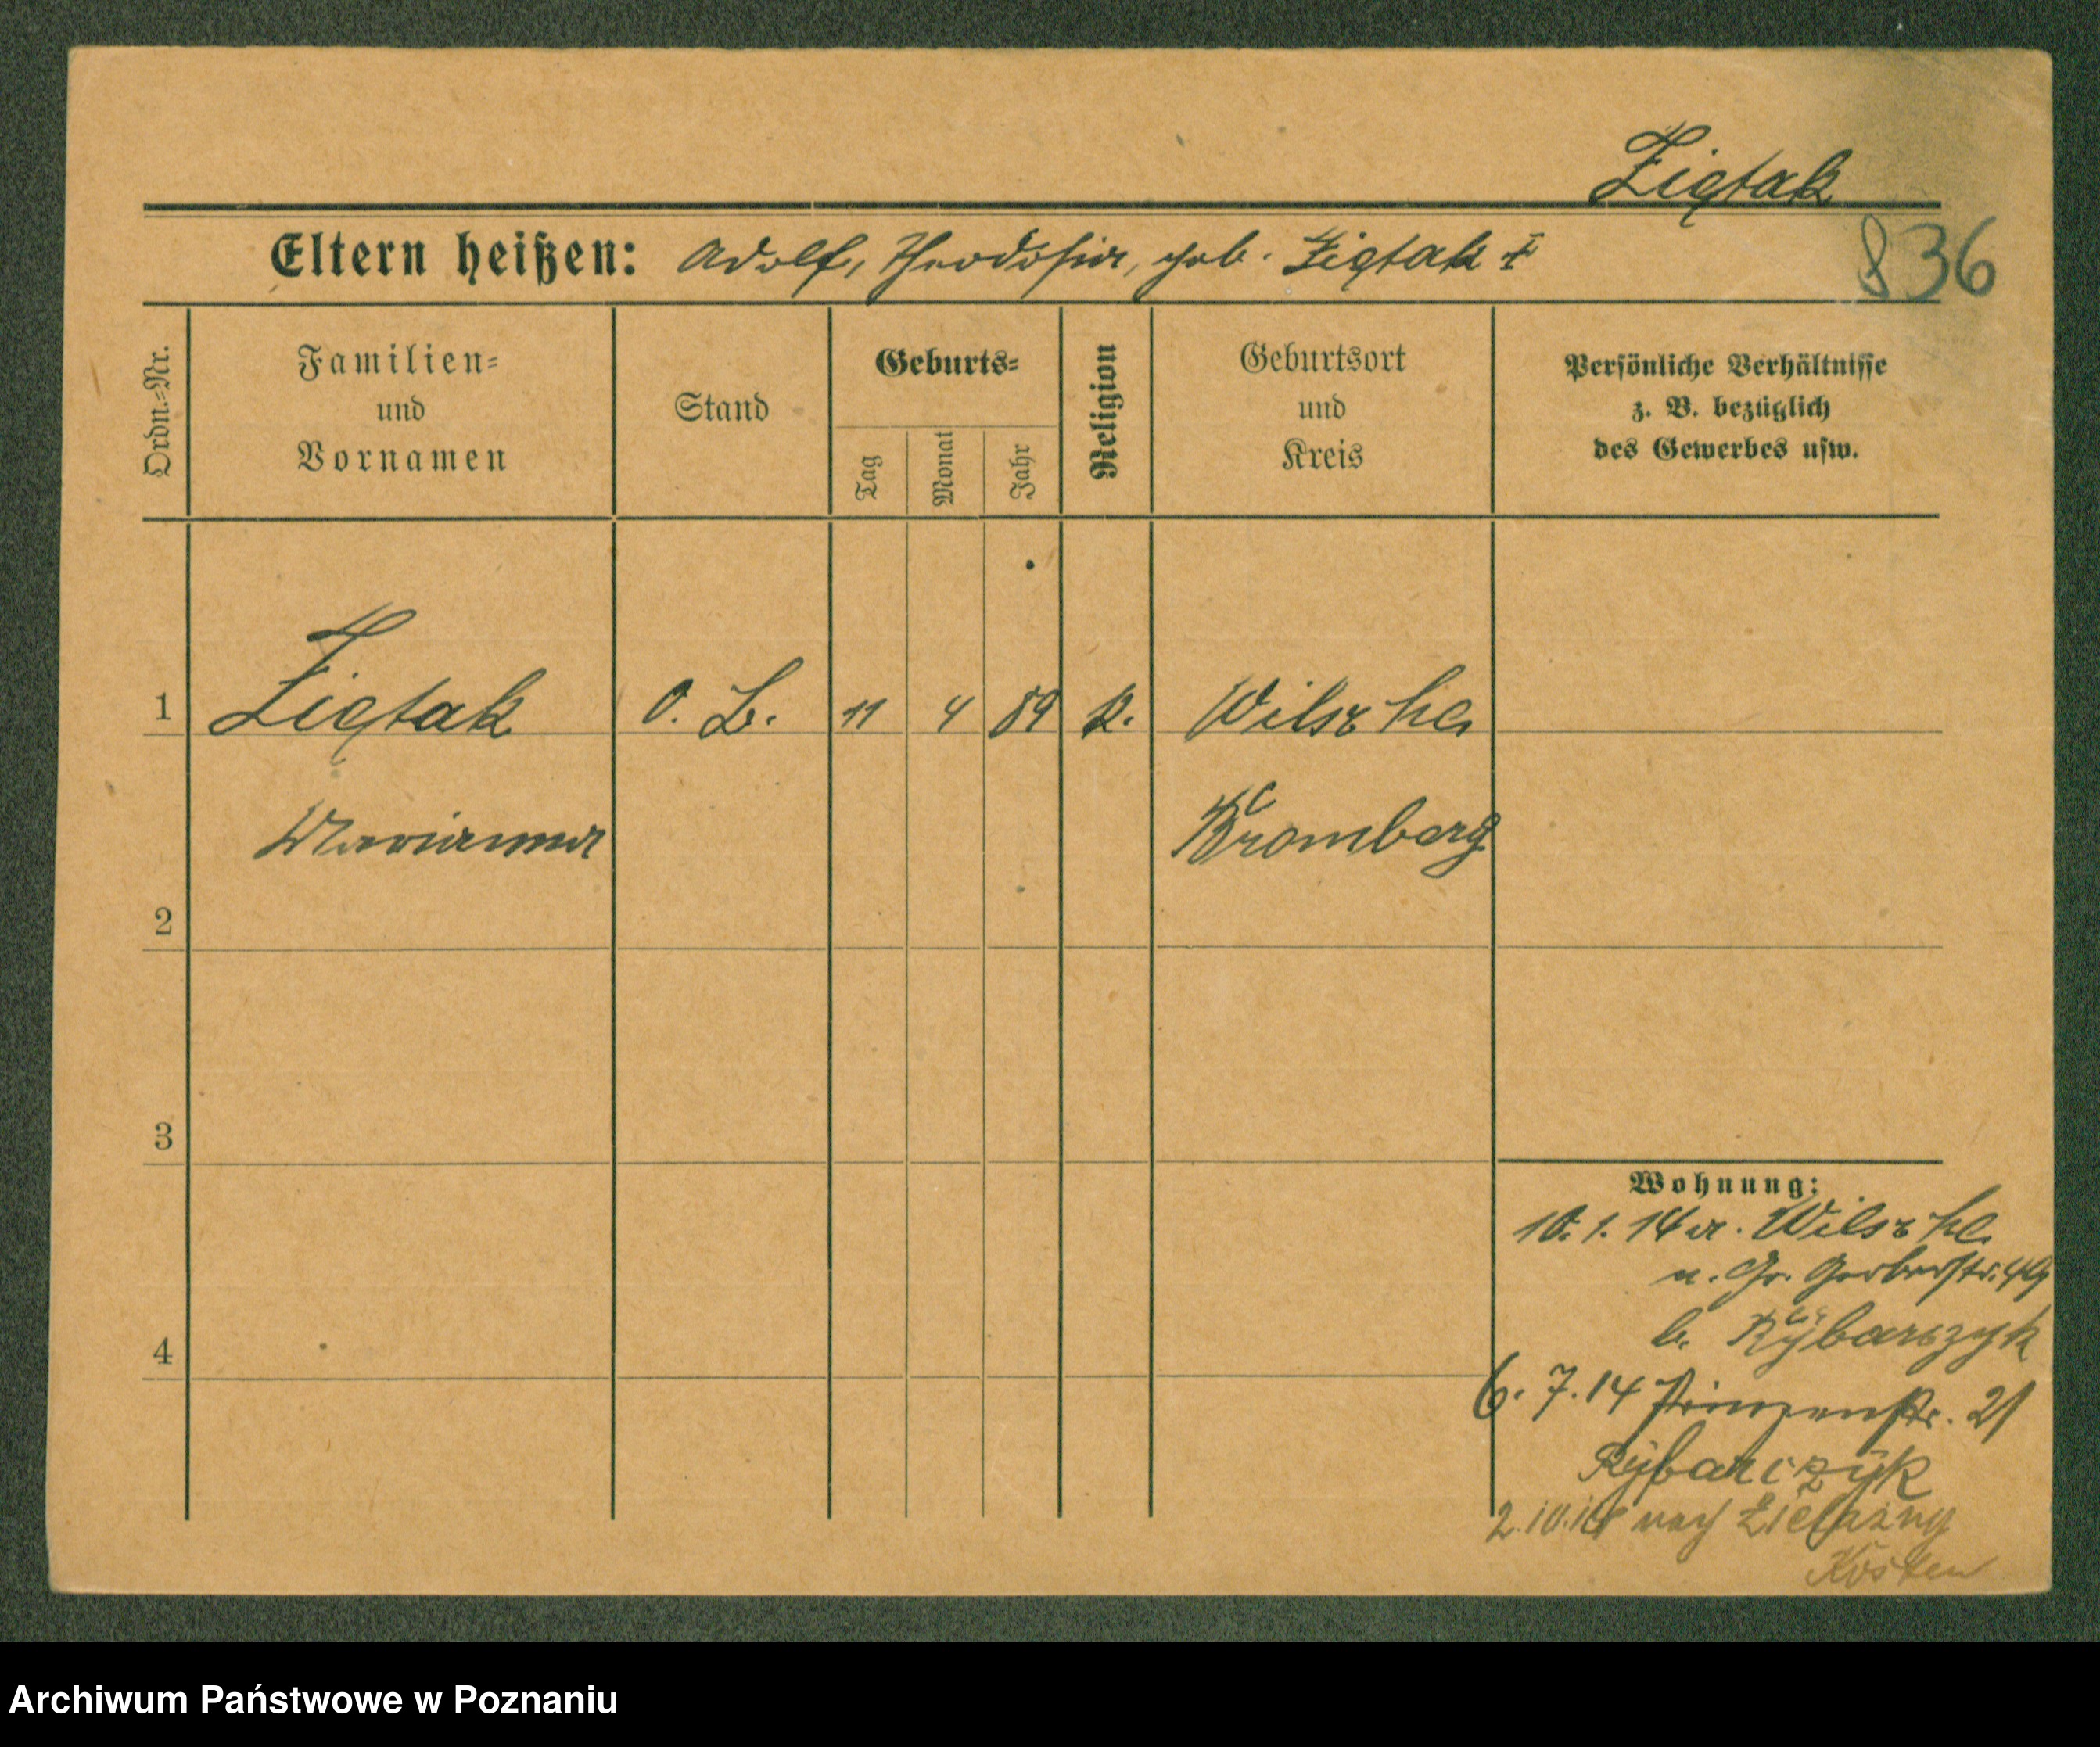 Ziętak
Eltern heißen: Adolf, Theodosia, geb. Ziętak I
836
Ordn.-Nr.
Familien-
und
Vornamen
Stand
Geburts-
Tag
Monat
Jahr
Religion
Geburtsort
und
Kreis
Persönliche Verhältnisse
z. B. bezüglich
des Gewerbes usw.
1 Ziętak O. L. 11 4 89 k. Wilsze
Marianna Bromberg
2
3
4
Wohnung:
10. 1. 14 a. Wilsze
n. Gr. Gerberstr. 49
b. Rÿbarszyk
6. 7. 14 Prinzenstr. 21
Rÿbarczÿk
2.10.14 nach
Kosten
Archiwum Państwowe w Poznaniu